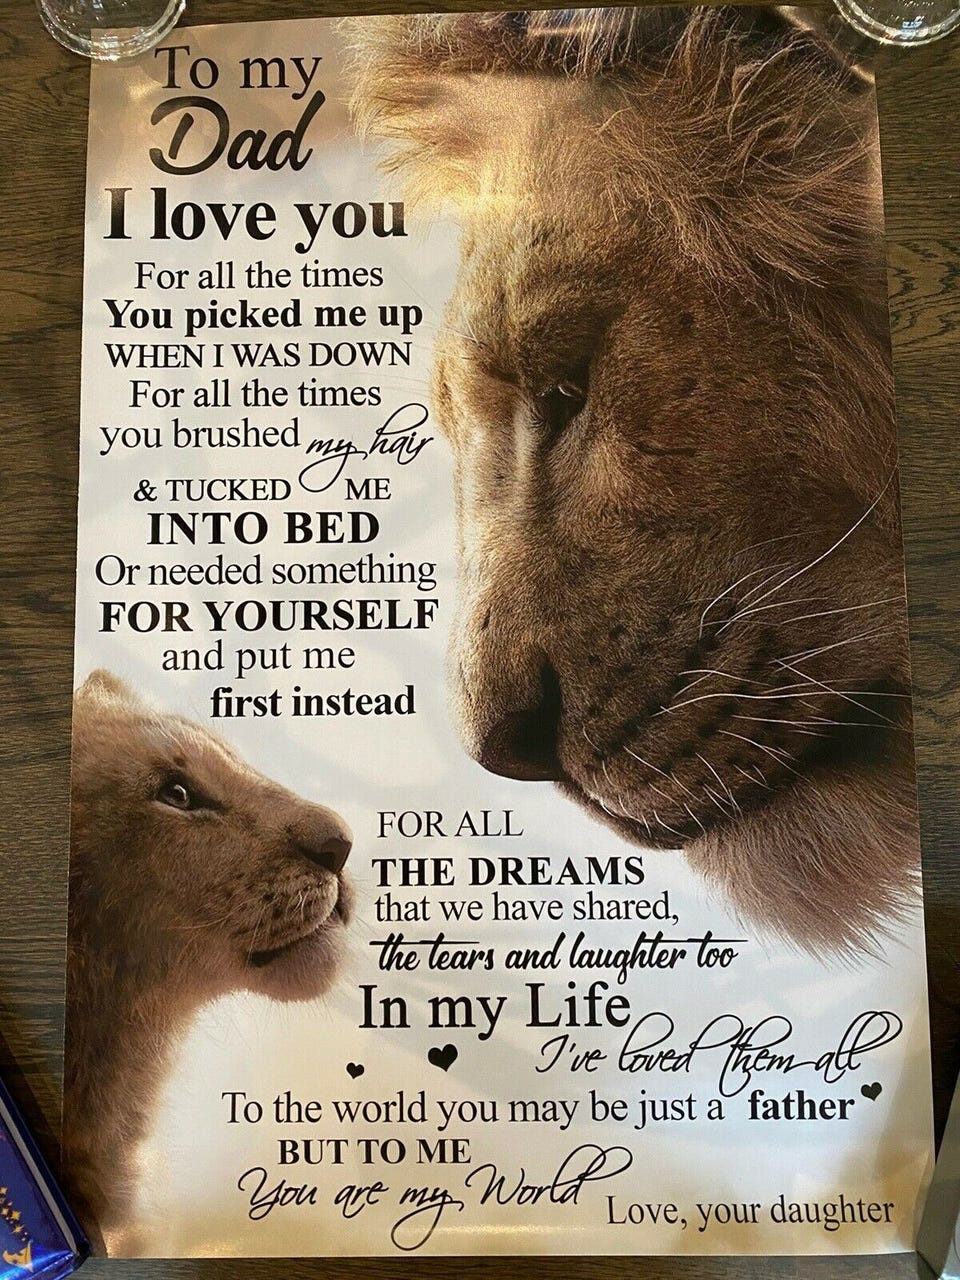 To my
Dad
I love you
For all the times
You picked me up
WHEN I WAS DOWN
For all the times
you brushed my hair
& TUCKED ME
INTO BED
Or needed something
FOR YOURSELF
and put me
first instead
FOR ALL
THE DREAMS
that we have shared,
the tears and laughter too
In my Life
I've loved them all
To the world you may be just a father
BUT TO ME
You are my World
Love, your daughter